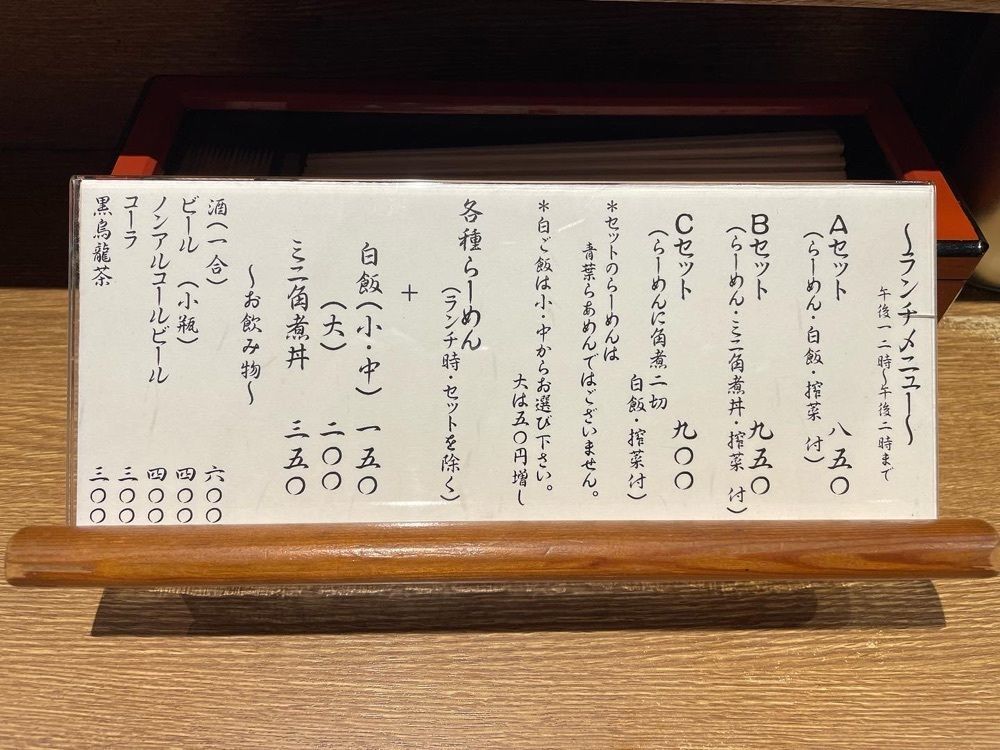 ～ランチメニュー～
午後一二時～午後二時まで
Aセット 八五〇
（らーめん・白飯・搾菜 付）
Bセット 九五〇
（らーめん・ミニ角煮丼・搾菜 付）
Cセット 九〇〇
（らーめんに角煮二切
白飯・搾菜付）
＊セットのらーめんは
青葉らあめんではございません。
＊白ご飯は小・中からお選び下さい。
大は五〇円増し
各種らーめん
（ランチ時・セットを除く）
＋
白飯（小・中） 一五〇
（大） 二〇〇
ミニ角煮丼 三五〇
～お飲み物～
酒（一合） 六〇〇
ビール（小瓶） 四〇〇
ノンアルコールビール 四〇〇
コーラ 三〇〇
黒烏龍茶 三〇〇